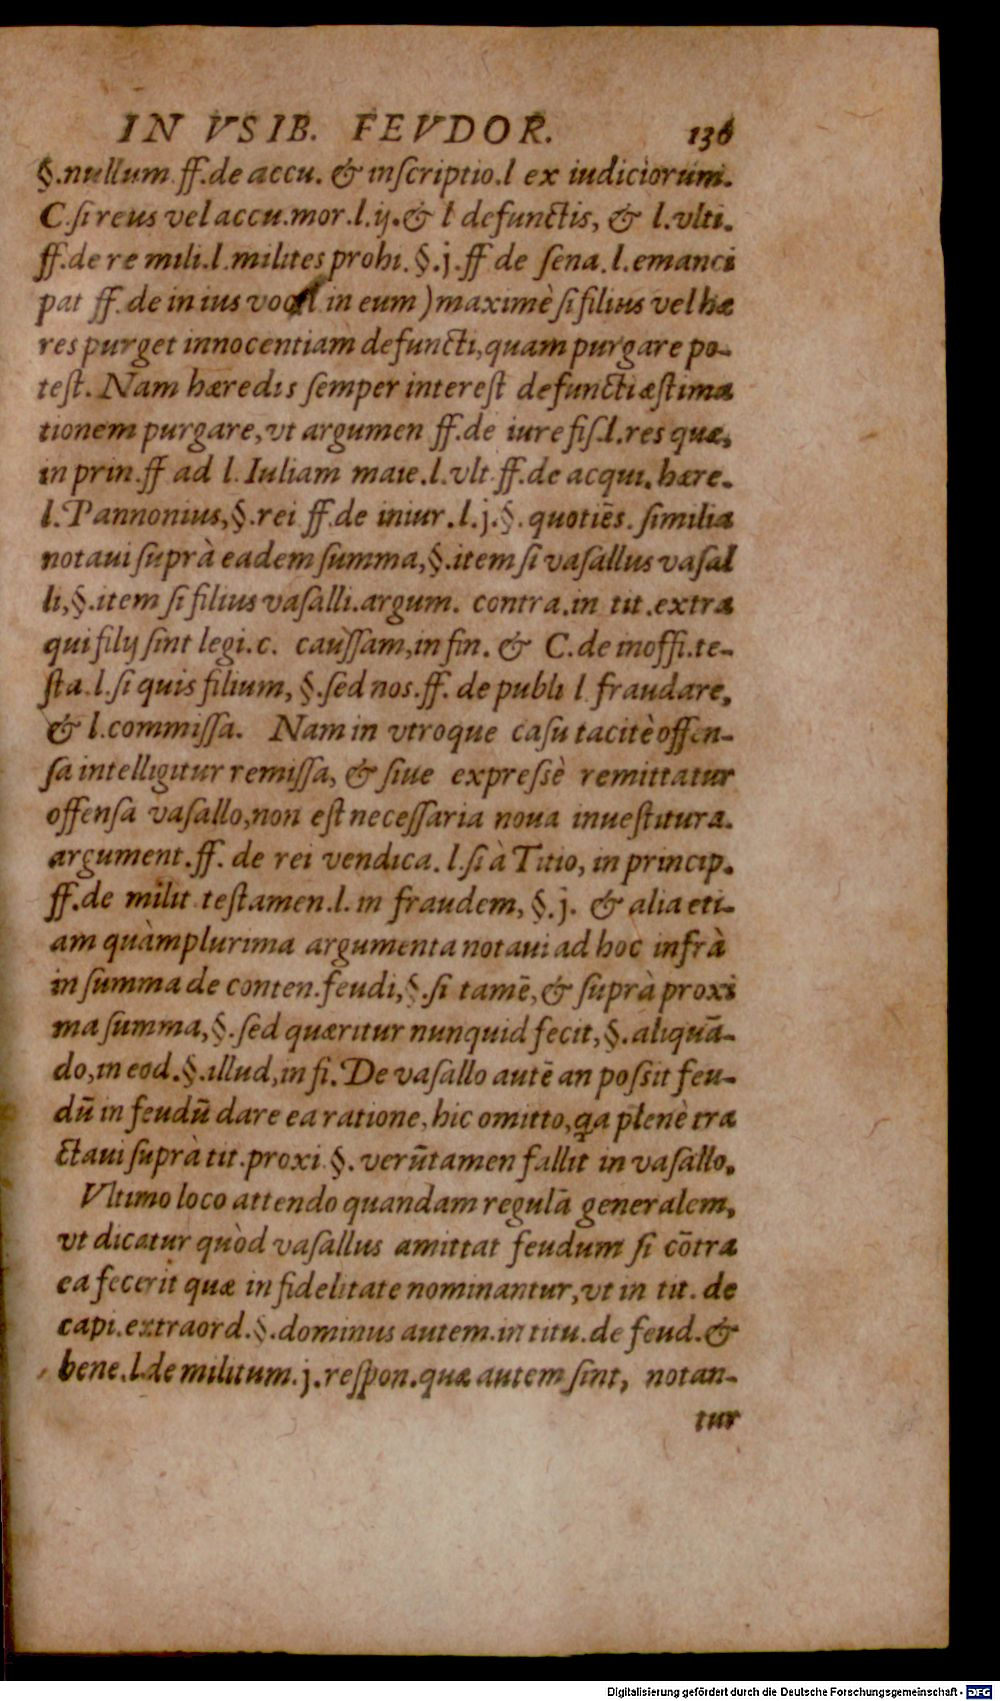 IN VSIB. FEVDOR. 136
§.nullum ff.de accu. & inſcriptio.l ex iudiciorum.
C.ſi reus vel accu.mor.l.ij.& l defunctis, & l.vlti.
ff.de re mili.l.milites prohi.§.j.ff de ſena.l.emanci
pat ff.de in ius voc l in eum) maximè ſi filius vel hæ
res purget innocentiam defuncti,quam purgare po-
teſt. Nam hæredis ſemper intereſt defuncti æſtima
tionem purgare,vt argumen ff.de iure fiſ.l.res quæ,
in prin.ff ad l.Iuliam maie.l.vlt.ff.de acqui.hære.
l.Pannonius,§.rei ff.de iniur.l.j.§.quotiēs.ſimilia
notaui ſuprà eadem ſumma,§.item ſi vaſallus vaſal
li,§.item ſi filius vaſalli.argum. contra.in tit.extra
qui filij ſint legi.c. cauſſam,in fin. & C.de inoffi.te-
ſta.l.ſi quis filium, §.ſed nos.ff. de publi l fraudare,
& l.commiſſa. Nam in vtroque caſu tacitè offen-
ſa intelligitur remiſſa, & ſiue expreſsè remittatur
offenſa vaſallo,non eſt neceſſaria noua inueſtitura.
argument.ff. de rei vendica.l.ſi à Titio, in princip.
ff.de milit teſtamen.l.in fraudem, §.j. & alia eti-
am quàmplurima argumenta notaui ad hoc infrà
in ſumma de conten.feudi,§.ſi tamē,& ſuprà proxi
ma ſumma,§.ſed quæritur nunquid fecit,§.aliquā-
do,in eod.§.illud,in fi.De vaſallo autē an poſsit feu-
dū in feudū dare ea ratione,hic omitto,ꝗa plenè tra
ctaui ſuprà tit.proxi §. verūtamen fallit in vaſallo.
Vltimo loco attendo quandam regulā generalem,
vt dicatur quòd vaſallus amittat feudum ſi cōtra
ea fecerit quæ in fidelitate nominantur,vt in tit. de
capi.extraord.§.dominus autem.in titu.de feud.&
bene.l.de militum.j.reſpon.quæ autem ſint, notan-
tur
Digitalisierung gefördert durch die Deutsche Forschungsgemeinschaft - DFG